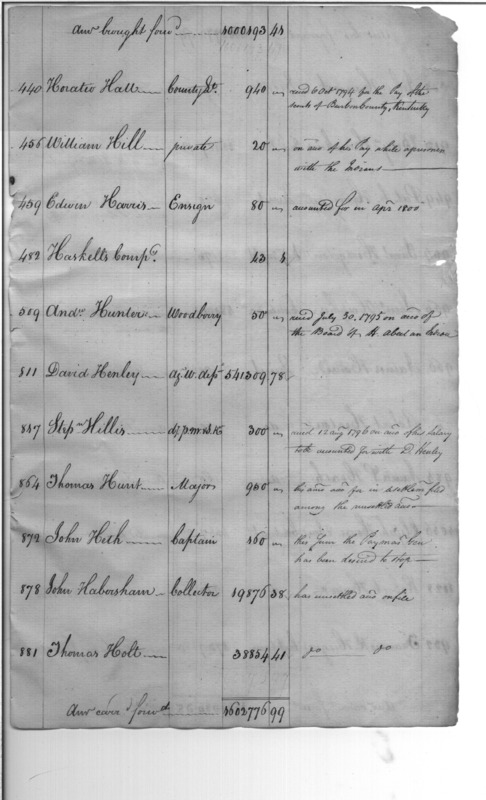 Amt brought forwd. 1000193 44
440 Horatio Hall County Lt. 940 recd 6 Oct 1794 for the Pay of the
scouts of Bourbon County, Kentucky
456 William Hill private 20 on acct of his Pay while a prisoner
with the Indians
459 Edwin Harris Ensign 80 accounted for in Apr 1800
482 Haskell's Compy. 43
509 Andw Hunter Woodberry 50 recd July 30. 1795 on acct of
the Board of
811 David Henley agt W. dept 541309 78
847 Stepn Hillis 300 recd 12 Aug 1796 on acct of his salary
to be accounted for with D. Henley
864 Thomas Hunt Major 960
among the unsettled accts
872 John Heth Captain 460 this from the Paymar Gen
has been desired to stop
878 John Habersham Collector 19876 38 has unsettled accts on file
881 Thomas Holt 38854 41 do do
Amt carrd forwd 1602776 99